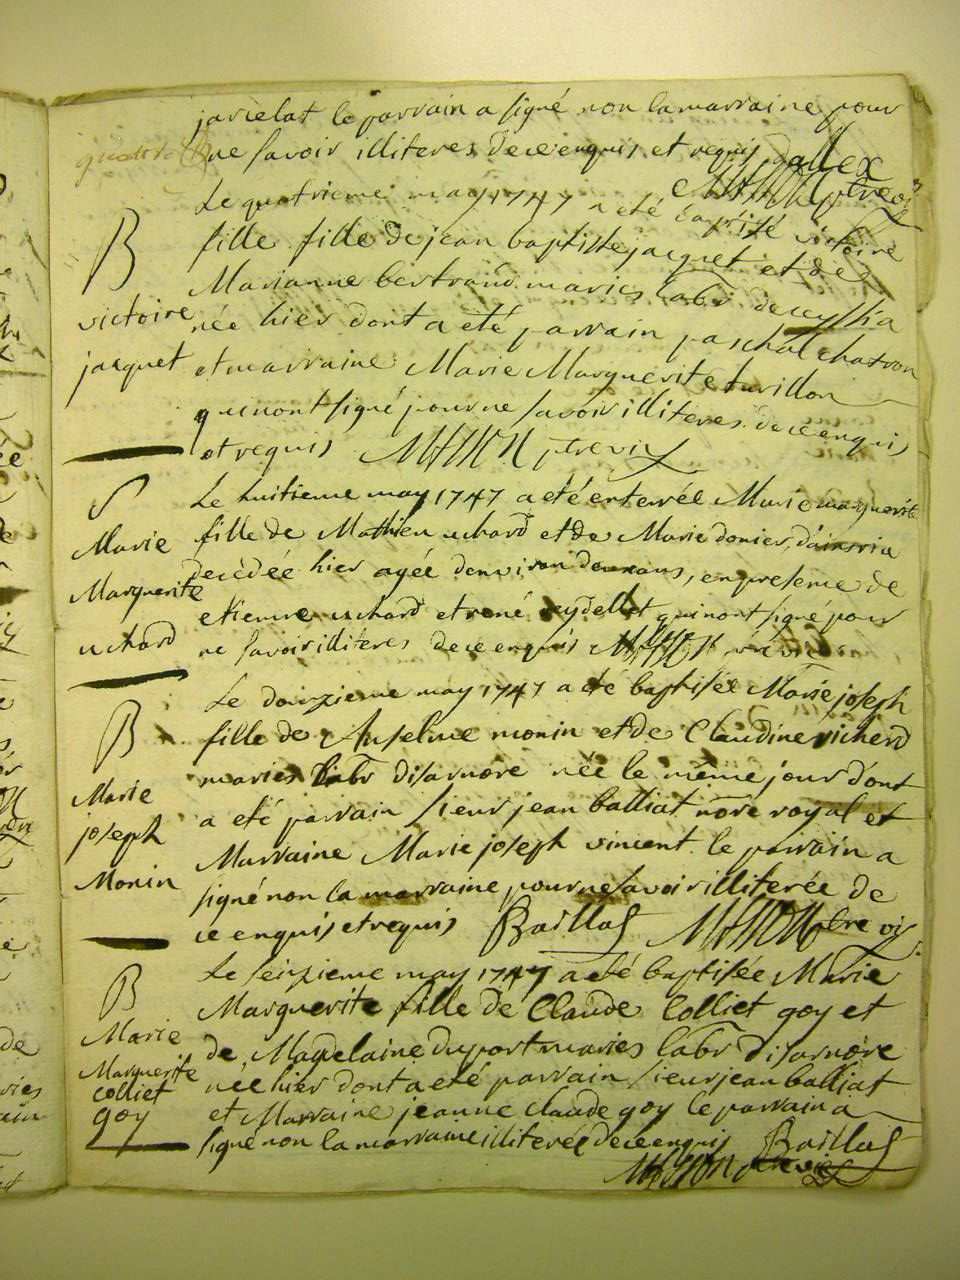 jarcelat le parrain a signé non la marraine pour
ne savoir illiteres de ce enquis et requis dallex
Masson ptre vic
Le quatrieme may 1747 a eté baptisé victoire
fille fille de jean baptiste jacquet et de
Marianne bertrand maries labr
née hier dont a eté parrain paschal chatron
et marraine Marie Marguerite turillon
qui nont signé pour ne savoir illiteres de ce enquis
et requis Masson ptre vic
B
victoire
jacquet
Le huitieme may 1747 a eté enterrée Marie marguerite
fille de Mathieu uchard et de Marie donier
decédée hier agée denviron deux ans, en presence de
etienne uchard et rené reydellet qui nont signé pour
ne savoir illiteres de ce enquis Masson ptre vic
S
Marie
Marguerite
uchard
Le douzieme may 1747 a eté baptisée Marie joseph
fille de Anselme monin et de Claudine richerd
maries labr disarnore née le même jour dont
a eté parrain sieur jean balliat nore royal et
Marraine Marie joseph vincent le parrain a
signé non la marraine pour ne savoir illiterée de
ce enquis et requis Baillat Masson ptre vic
B
Marie
joseph
Monin
Le seizieme may 1747 a eté baptisée Marie
Marguerite fille de Claude Colliet goy et
de Magdelaine duport maries labr disarnore
née hier dont a eté parrain sieur jean balliat
et Marraine jeanne claude goy le parrain a
signé non la marraine illiterée de ce enquis Baillat
Masson ptre vic
B
Marie
Marguerite
colliet
goy